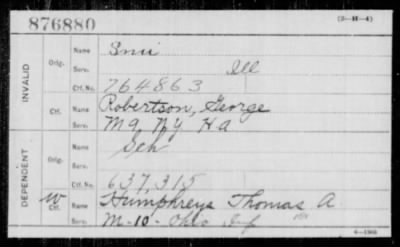 876880
(3-H-4)
INVALID
Orig.
Name
Smi
Serv.
Ill
Ctf. No.
764863
Ctf.
Name
Robertson, George
Serv.
M 9, N.Y. H a
DEPENDENT
Orig.
Name
Serv.
Ctf. No.
637,315
W
Ctf.
Name
Humphreys Thomas A
Serv.
M-10- Ohio Inf
6-1966